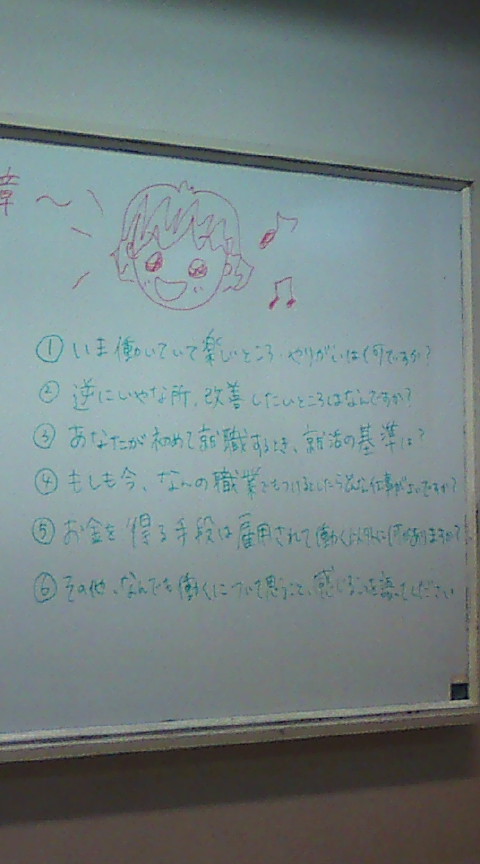 章〜
① いま働いていて楽しいところ・やりがいは何ですか?
② 逆にいやな所、改善したいところはなんですか?
③ あなたが初めて就職するとき、就活の基準は?
④ もしも今、なんの職業でもつけるとしたらどんな仕事がよいですか?
⑤ お金を得る手段は雇用されて働く以外に何がありますか?
⑥ その他、なんでも働くについて思うこと、感じることを語ってください